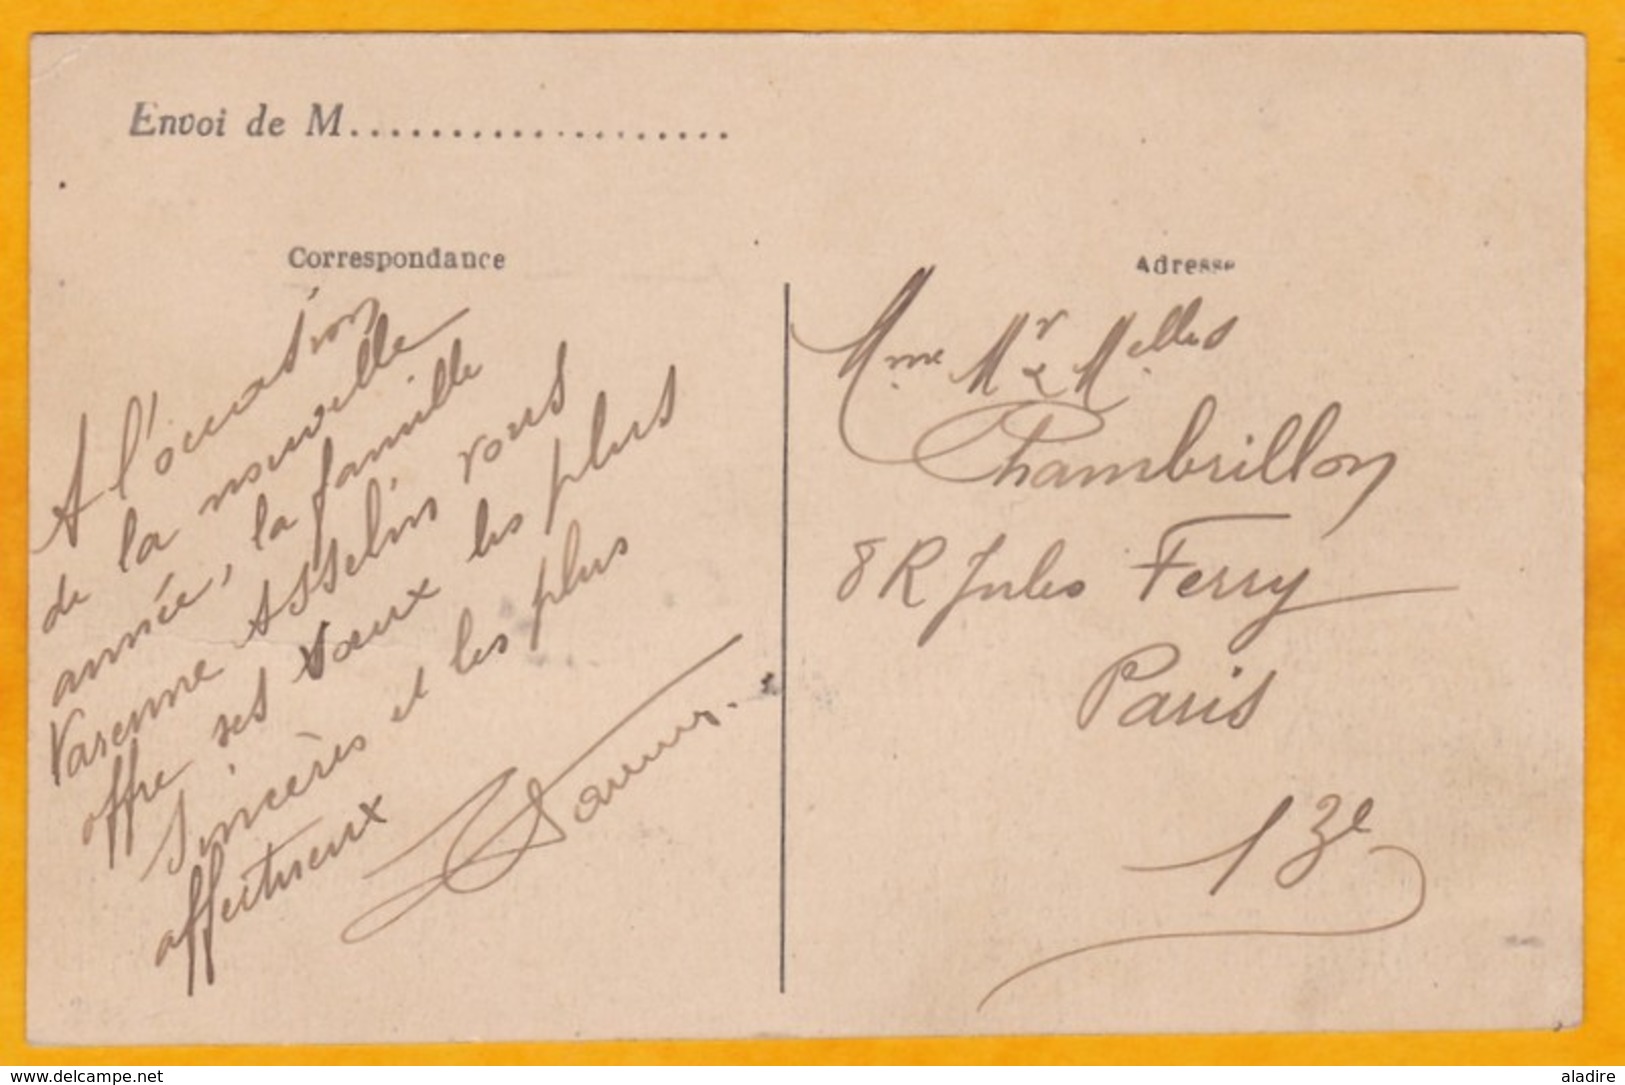 Envoi de M....................
Correspondance
A l'occasion
de la nouvelle
année, la famille
Varenne Asselin vous
offre ses voeux les plus
sincères et les plus
affectueux
Adresse
Mme Mr & Melles
Chambrillon
8 R Jules Ferry
Paris
13e
www.delcampe.net
aladire